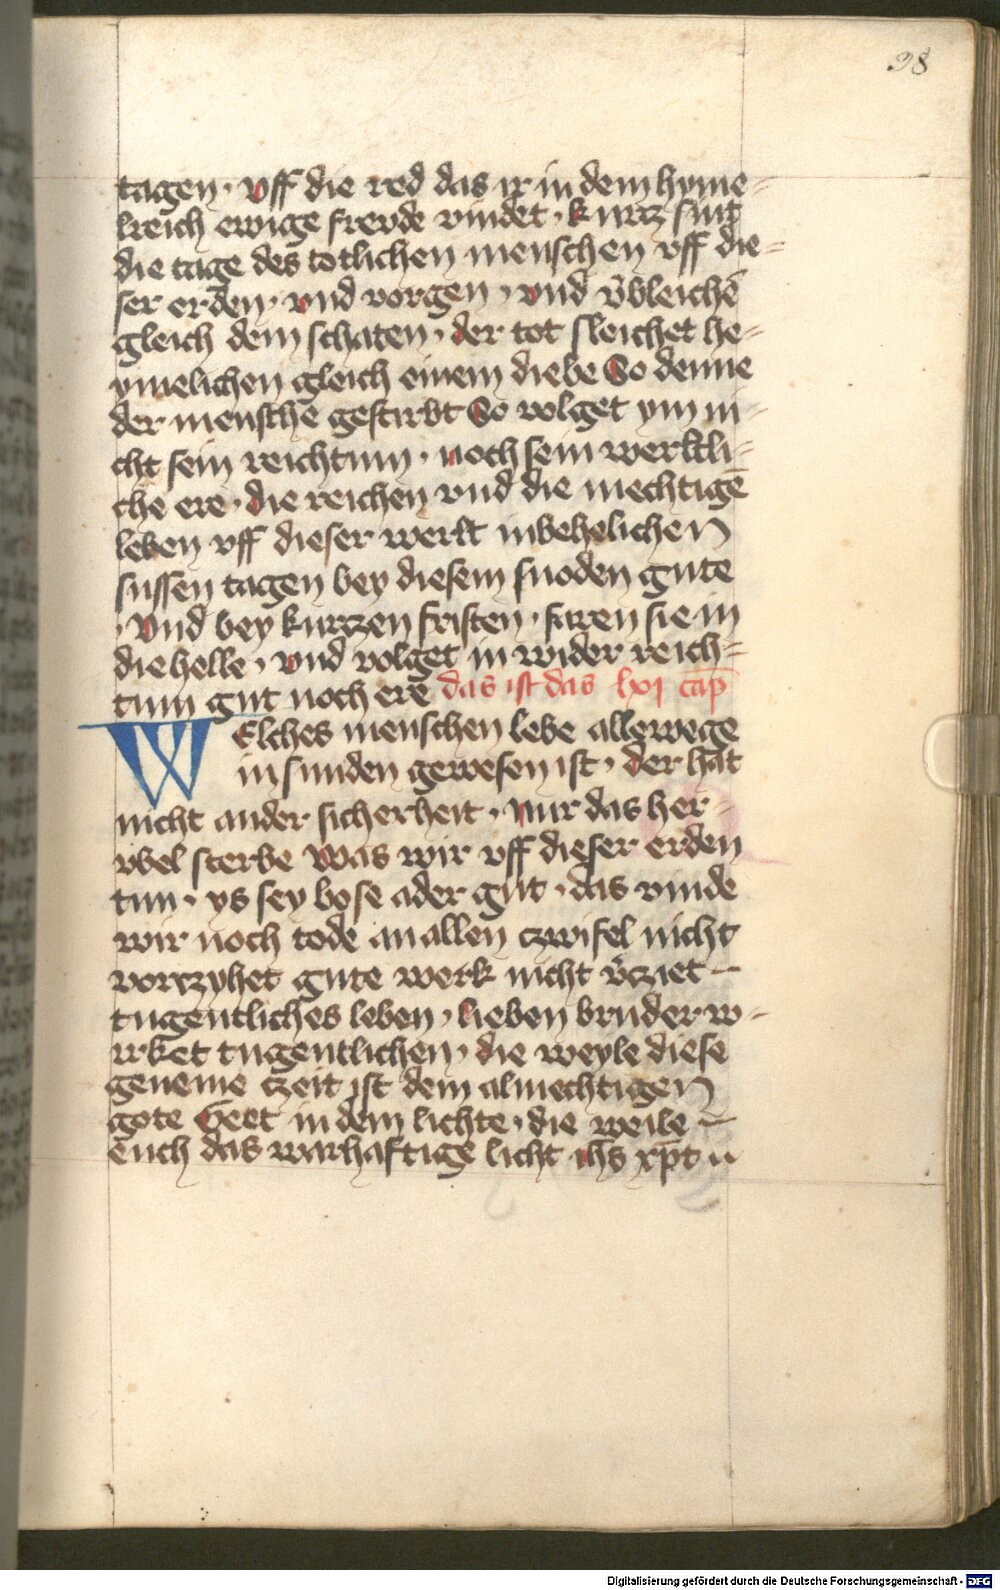 98
tagen · vff die red das ir in dem hyme-
lreich ewige frevde vindet · kurcz sint
die tage des totlichen menschen vff die-
ser erden · vnd vorgen · vnd v̄bleichē
gleich dem schaten · der tot sleichet he-
ymelichen gleich einem diebe So denne
der mensche gestirbt So volget ym ni-
cht sein reichtum · noch sein werltli-
che ere · die reichen vnd die mechtigē
leben vff dieser werlt in behelichen
sussen tagen bey diesem snoden gute
· Vnd bey kurczen fristen · faren sie in
die helle · vnd volget in wider reich-
tum gut noch ere das ist das lxj cap
WElches menschen lebe allewege
in sunden gewesen ist · der hat
nicht ander sicherheit · Nur das her-
vbel sterbe Was wir vff dieser erden
tun · ys sey bose ader gut · das vinde
wir noch tode an allen czwifel nicht
vorczyhet gute werk nicht v̄cziet –
tugentliches leben · lieben bruder w-
irket tugentlichen · die weyle diese
geneme czeit ist dem almechtigen
gote Geet in dem lichte · die weile –
euch das warhaftige licht ihs xpt u
Digitalisierung gefördert durch die Deutsche Forschungsgemeinschaft - DFG